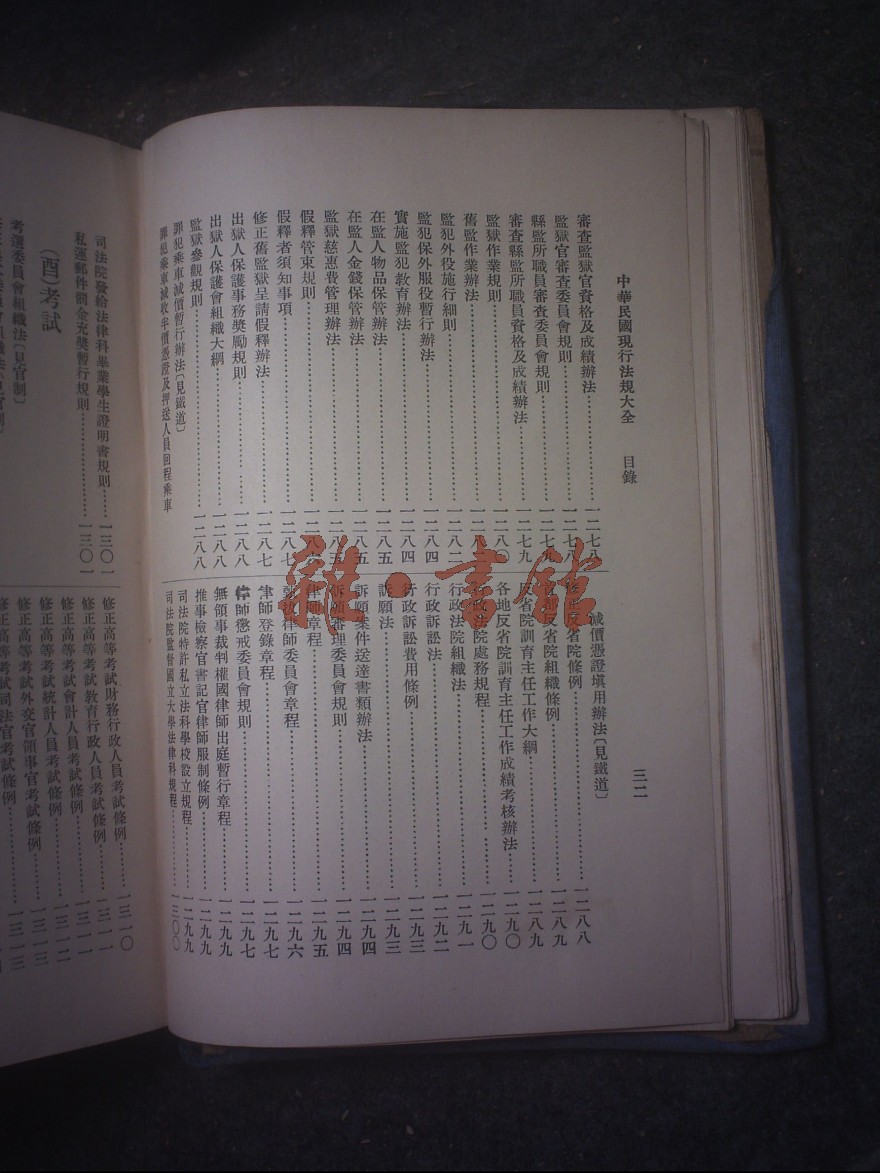 中華民國現行法規大全　目錄　三二
審查監獄官資格及成績辦法……一二七八
監獄官審查委員會規則……一二七八
縣監所職員審查委員會規則……一二七九
審查縣監所職員資格及成績辦法……一二七九
監獄作業規則……一二八〇
舊監作業辦法……一二八二
監犯外役施行細則……一二八二
監犯保外服役暫行辦法……一二八四
實施監犯教育辦法……一二八四
在監人物品保管辦法……一二八五
在監人金錢保管辦法……一二八五
監獄慈惠費管理辦法……一二八五
假釋管束規則……一二八六
假釋者須知事項……一二八七
修正舊監獄呈請假釋辦法……一二八七
出獄人保護事務獎勵規則……一二八八
出獄人保護會組織大綱……一二八八
監獄參觀規則……一二八八
罪犯乘車減價暫行辦法〔見鐵道〕
罪犯乘車減收半價憑證及押送人員回程乘車
減價憑證填用辦法〔見鐵道〕
修正反省院條例……一二八八
反省院組織條例……一二八九
反省院訓育主任工作大綱……一二八九
各地反省院訓育主任工作成績考核辦法……一二九〇
行政法院處務規程……一二九〇
行政法院組織法……一二九一
行政訴訟法……一二九二
行政訴訟費用條例……一二九三
訴願法……一二九三
訴願案件送達書類辦法……一二九四
訴願審理委員會規則……一二九四
律師章程……一二九五
律師委員會章程……一二九六
律師登錄章程……一二九七
律師懲戒委員會規則……一二九七
無領事裁判權國律師出庭暫行章程……一二九九
推事檢察官書記官律師服制條例……一二九九
司法院特許私立法科學校設立規程……一二九九
司法院監督國立大學法律科規程……一三〇〇
司法院發給法律科畢業學生證明書規則……一三〇一
私運郵件罰金充獎暫行規則……一三〇一
（酉）考試
考選委員會組織法〔見官制〕
修正高等考試財務行政人員考試條例……一三一〇
修正高等考試教育行政人員考試條例……一三一一
修正高等考試會計人員考試條例……一三一一
修正高等考試統計人員考試條例……一三一二
修正高等考試外交官領事官考試條例……一三一三
修正高等考試司法官考試條例……一三一三
雜·書館